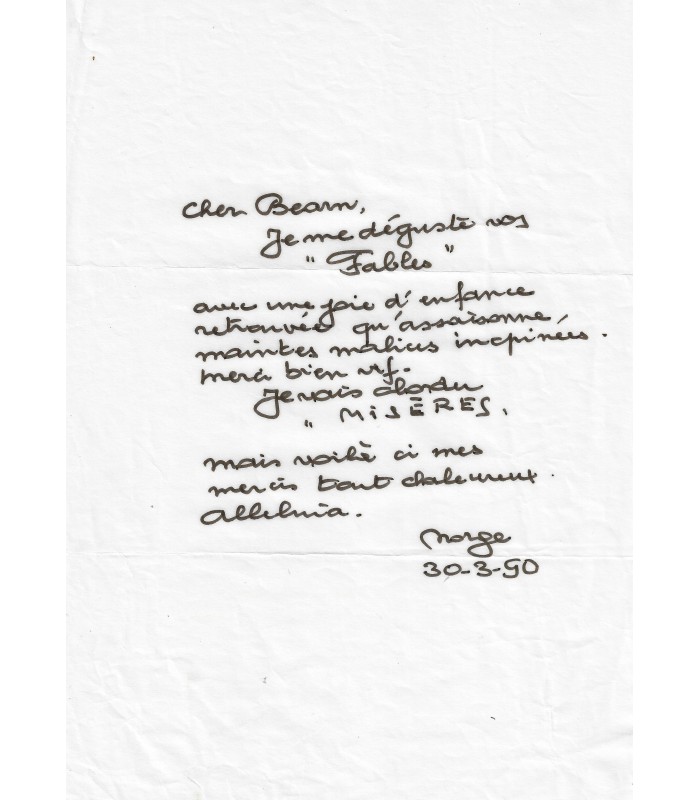 Cher Bearn,
Je me déguste vos
" Fables "
avec une joie d'enfance
retrouvée qu'assaisonne,
maintes malices inopinées.
merci bien vif.
Je vais aborder
" MiSÈRES.
mais voilà ci mes
mercis tout chaleureux.
Alleluia.
Norge
30-3-90